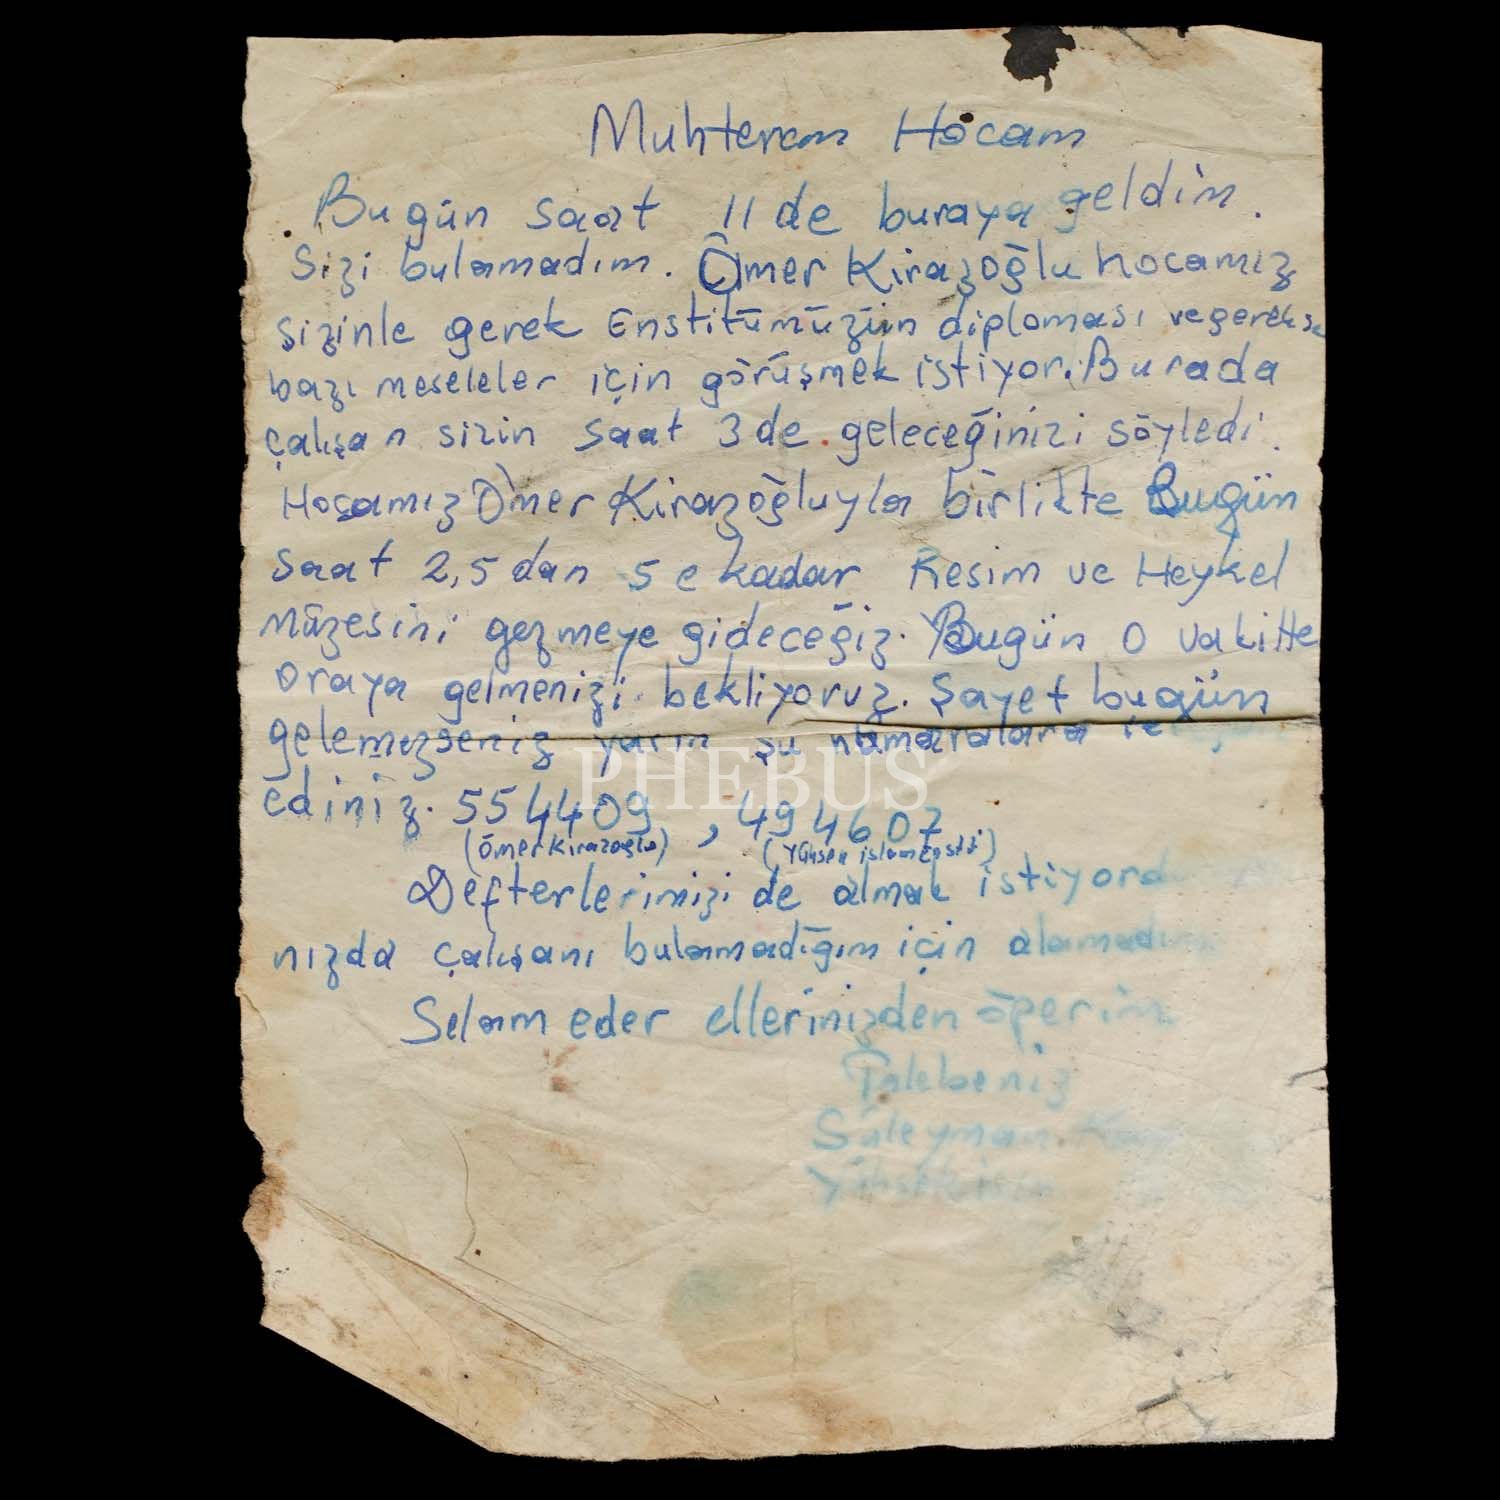 Muhterem Hocam
Bugün saat 11 de buraya geldim.
Sizi bulamadım. Ömer Kirazoğlu hocamız
sizinle gerek Enstitümüzün diploması ve gerekse
bazı meseleler için görüşmek istiyor. Burada
çalışan sizin saat 3 de geleceğinizi söyledi.
Hocamız Ömer Kirazoğluyla birlikte Bugün
saat 2,5 dan 5 e kadar Resim ve Heykel
Müzesini gezmeye gideceğiz. Bugün o vakitte
oraya gelmenizi bekliyoruz. Şayet bugün
gelemezseniz yarın şu numaralara
ediniz. 554409, 494607
(Ömer Kirazoğlu) (Yüksek islam Enstit)
Defterlerimizi de almak istiyord
nızda çalışanı bulamadığım için alamadım
Selam eder ellerinizden öperim
Talebeniz
Süleyman
PHEBUS